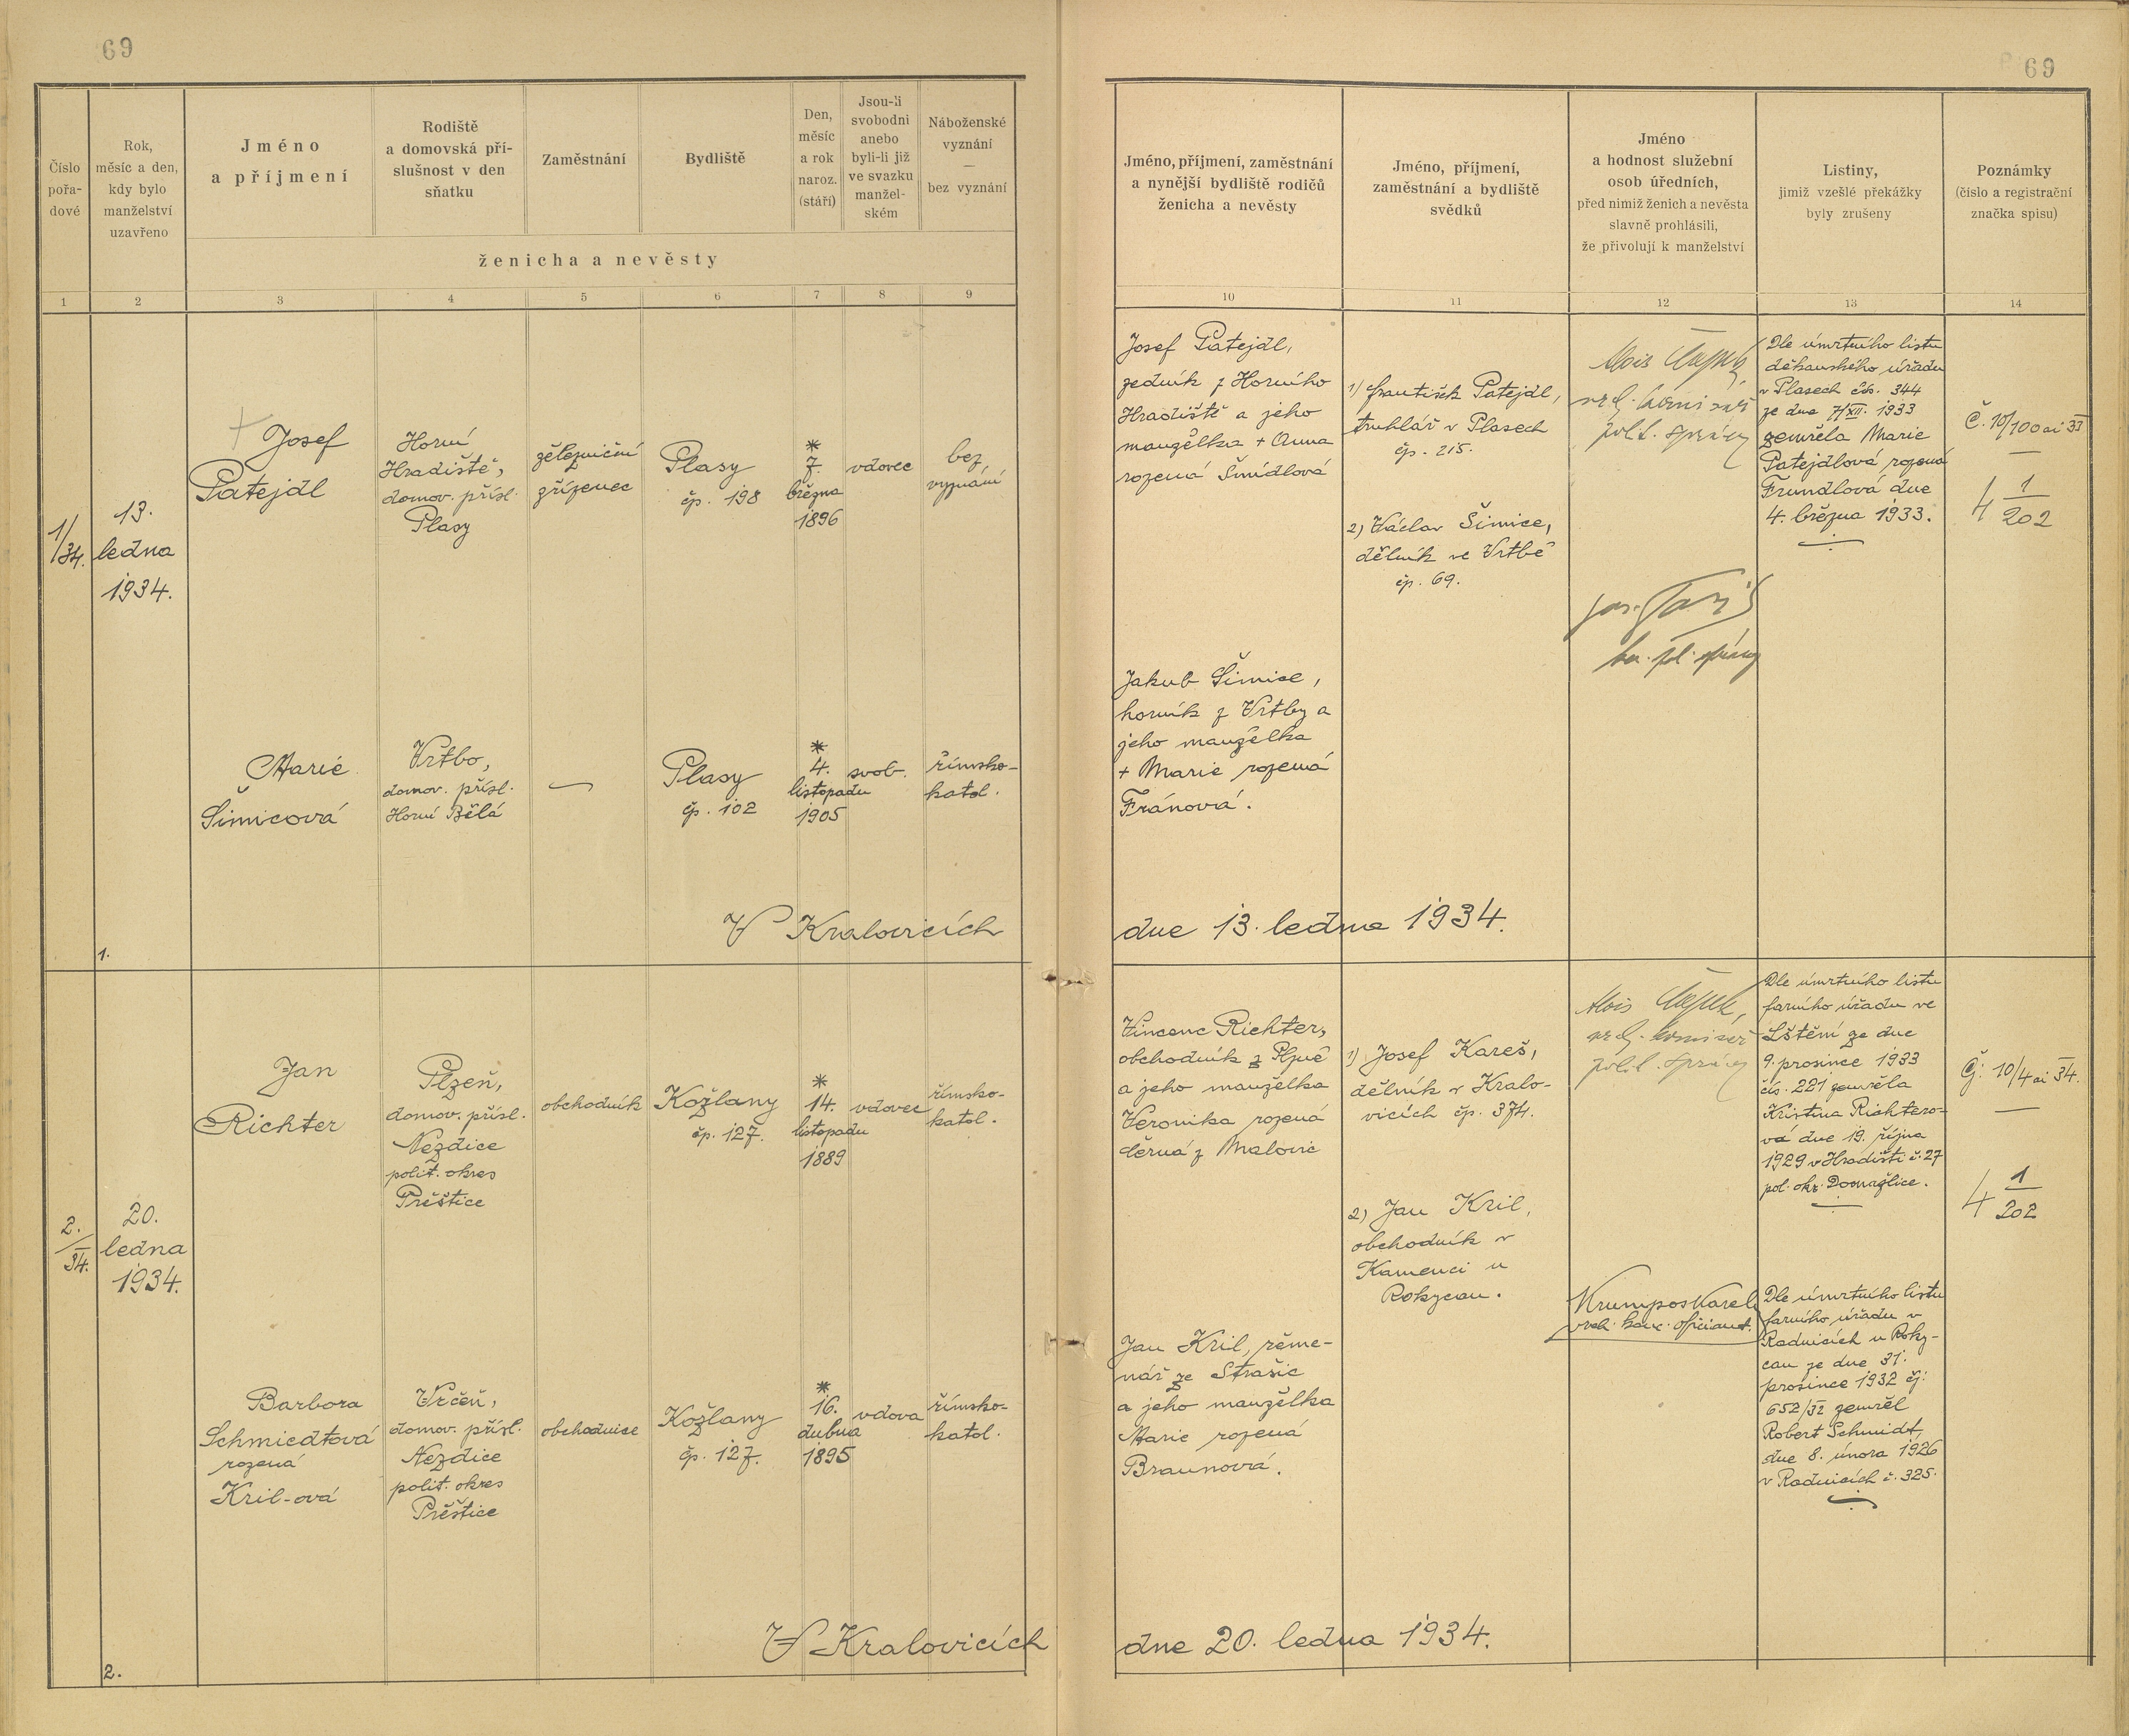 69
69
Číslo
pořa-
dové
Rok,
měsíc a den,
kdy bylo
manželství
uzavřeno
Jméno
a příjmení
Rodiště
a domovská pří-
slušnost v den
sňatku
Zaměstnání
Bydliště
Den,
měsíc
a rok
naroz.
(stáří)
Jsou-li
svobodni
anebo
byli-li již
ve svazku
manžel-
ském
Náboženské
vyznání
—
bez vyznání
ženicha a nevěsty
Jméno, příjmení, zaměstnání
a nynější bydliště rodičů
ženicha a nevěsty
Jméno, příjmení,
zaměstnání a bydliště
svědků
Jméno
a hodnost služební
osob úředních,
před nimiž ženich a nevěsta
slavně prohlásili,
že přivolují k manželství
Listiny,
jimiž vzešlé překážky
byly zrušeny
Poznámky
(číslo a registrační
značka spisu)
1 2 3 4 5 6 7 8 9 10 11 12 13 14
1/34.
13.
ledna
1934.
Josef
Patejdl
Horní
Hradiště,
domov. přísl.
Plasy
železniční
zřízenec
Plasy
čp. 198
*
7.
března
1896
vdovec
bez
vyznání
Josef Patejdl,
zedník z Horního
Hradiště a jeho
manželka + Anna
rozená Šmídlová
1) František Patejdl,
truhlář v Plasech
čp. 215.
2) Václav Šimice,
dělník ve Vrtbě
čp. 69.
Alois
komisař
polit. správy
Dle úmrtního listu
děkanského úřadu
v Plasech čís. 344
ze dne 7/XII. 1933
zemřela Marie
Patejdlová rozená
Frundlová dne
4. března 1933.
Č. 10/100 ai 33
—
4 1/202
Marie
Šimicová
Vrtbo,
domov. přísl.
Horní Bělá
—
Plasy
čp. 102
*
4.
listopadu
1905
svob.
římsko-
katol.
Jakub Šimice,
horník z Vrtby a
jeho manželka
+ Marie rozená
Fránová.
1.
V Kralovicích dne 13. ledna 1934.
2./34.
20.
ledna
1934.
Jan
Richter
Plzeň,
domov. přísl.
Nezdice
polit. okres
Přeštice
obchodník
Kožlany
čp. 127.
*
14.
listopadu
1889
vdovec
římsko-
katol.
Vincenc Richter,
obchodník z Plzně
a jeho manželka
Veronika rozená
Černá z Malovic
1) Josef Kareš,
dělník v Kralo-
vicích čp. 374.
2) Jan Kril,
obchodník v
Kamenci u
Rokycan.
Alois
komisař
polit. správy
Krumpos Karel
Dle úmrtního listu
farního úřadu ve
Lštění ze dne
9. prosince 1933
čís. 221 zemřela
Kristina Richtero-
vá dne 19. října
1929 v Hradišti č. 27
pol. okr. Domažlice.
Čj. 10/4 ai 34.
—
4 1/202
Barbora
Schmiedtová
rozená
Kril-ová
Vrčeň,
domov. přísl.
Nezdice
polit. okres
Přeštice
obchodnice
Kožlany
čp. 127.
*
16.
dubna
1895
vdova
římsko-
katol.
Jan Kril, řeme-
nář ze Strašic
a jeho manželka
Marie rozená
Braunová.
Dle úmrtního listu
farního úřadu v
Radnicích u Roky-
can ze dne 31.
prosince 1932 čj.
652/32 zemřel
Robert Schmidt,
dne 8. února 1926
v Radnicích č. 325.
2.
V Kralovicích dne 20. ledna 1934.